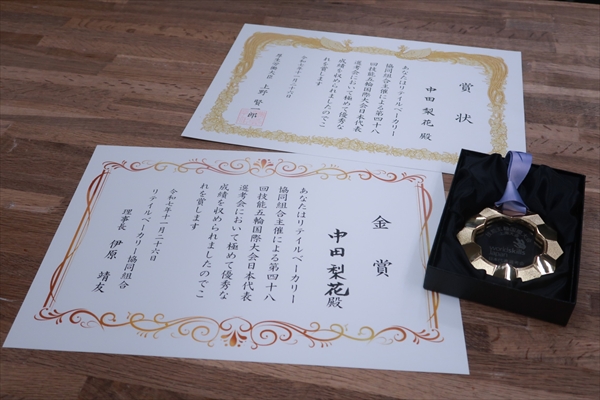 賞状
中田 梨花 殿
あなたはリテイルベーカリー
協同組合主催による第四十八
回技能五輪国際大会日本代表
選考会において極めて優秀な
成績を収められましたのでこ
れを賞します
令和七年十一月二十六日
厚生労働大臣 上野 賢一郎
金賞
中田 梨花 殿
あなたはリテイルベーカリー
協同組合主催による第四十八
回技能五輪国際大会日本代表
選考会において極めて優秀な
成績を収められましたのでこ
れを賞します
令和七年十一月二十六日
リテイルベーカリー協同組合
理事長 伊原 靖友